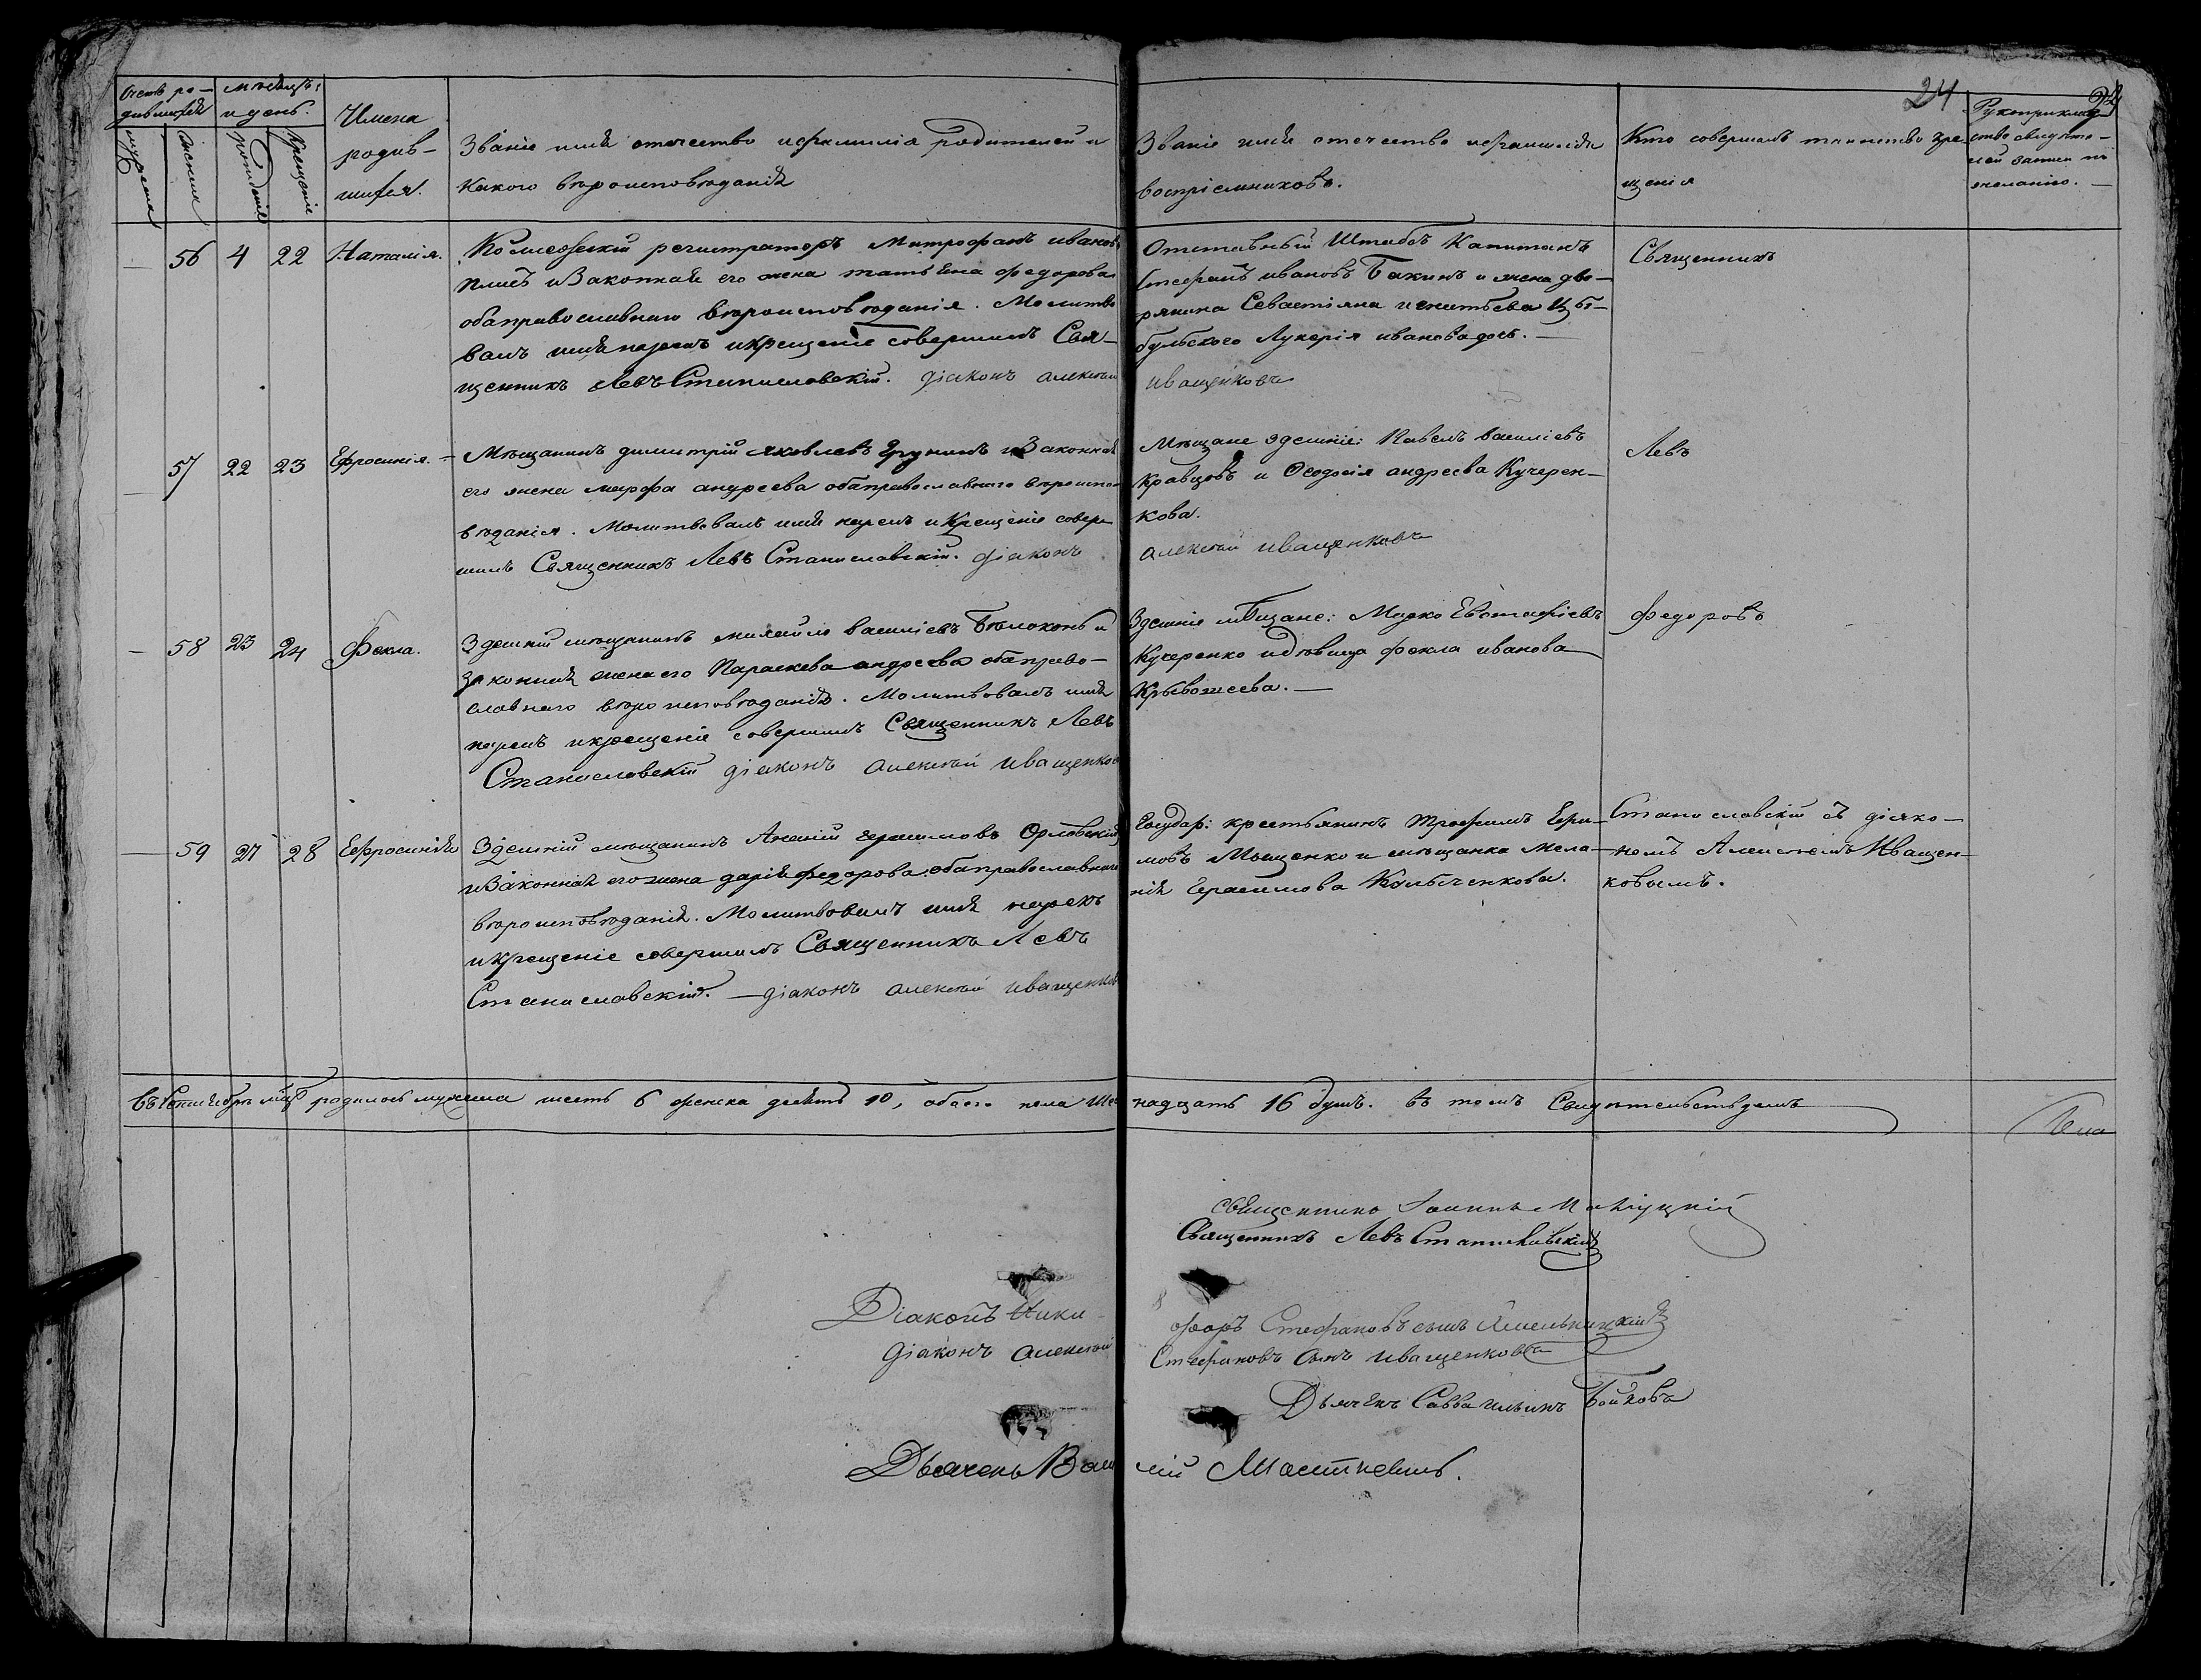 24
Счетъ ро-
дившихся
мѣсяцъ
и день.
Имена
родив-
шихся.
мужеска
женска
рожденіе
крещеніе
Званіе имя отечество и фамилія родителей и
какого вѣроисповѣданія
Званіе имя отечество и фамилія
воспріемниковъ.
Кто совершалъ таинство кре-
щенія
Рукоприклад-
ство свидѣте-
лей записи по
желанію.
— 56 4 22 Наталія.
Коллежскій регистраторъ Митрофанъ ивановъ
и законная его жена татьяна федорова
оба православнаго вѣроисповѣданія. Молитво-
валъ имя нарекъ и крещеніе совершилъ Свя-
щенникъ Левъ Станиславскій. діаконъ алексѣй
Отставный Штабсъ Капитанъ
Стефанъ ивановъ Бакинъ и жена дво-
рянина Севастіяна игнатьева Цы-
бульского Лукерія иванова дочь. —
иващенковъ
Священникъ
— 57 22 23 Ефросинія. —
Мѣщанинъ димитрій яковлевъ Грунинъ и законная
его жена марфа андреева оба православнаго вѣроиспо-
вѣданія. Молитвовалъ имя нарекъ и крещеніе совер-
шилъ Священникъ Левъ Станиславскій. діаконъ
Мѣщане здешніе: Павелъ василіевъ
Кравцовъ и Ѳеодосія андреева Кучерен-
кова.
алексѣй иващенковъ
Левъ
— 58 23 24 Фекла.
Здешній мѣщанинъ михайло василіевъ Бѣлоконь и
законная жена его Параскева андреева оба право-
славнаго вѣроисповѣданія. Молитвовалъ имя
нарекъ и крещеніе совершилъ Священникъ Левъ
Станиславскій діаконъ алексѣй иващенков
Здешніе мѣщане: Марко Евстафіевъ
Кучеренко и дѣвица фекла иванова
Крывошеева. —
Федоровъ
— 59 27 28 Еефросинія
Здешній мѣщанинъ Ананій герасимовъ Орловскій
и законная его жена дарія федорова оба православнаго
вѣроисповѣданія. Молитвовалъ имя нарекъ
и крещеніе совершилъ Священникъ Левъ
Станиславскій. — діаконъ алексѣй иващенков
Государ: крестьянинъ трофимъ Ефи-
мовъ Мищенко и мѣщанка Мела-
нія Герасимова Колыченкова.
Станиславскій съ діако-
номъ Алексѣемъ Иващен-
ковымъ.
въ Сентябрѣ мцѣ родилось мужеска шесть 6 женска десять 10, обоего пола шес надцать 16 душъ. въ томъ Свидѣтельствуемъ
священникъ Іоаннъ
Священникъ Левъ Станиславскій
Діаконъ Ники форъ Стефановъ сынъ Хмельницкій
діаконъ алексѣй Стефановъ сынъ иващенковъ
Дьячекъ Савва ильинъ Бойковъ
Дьячекъ Васи лій